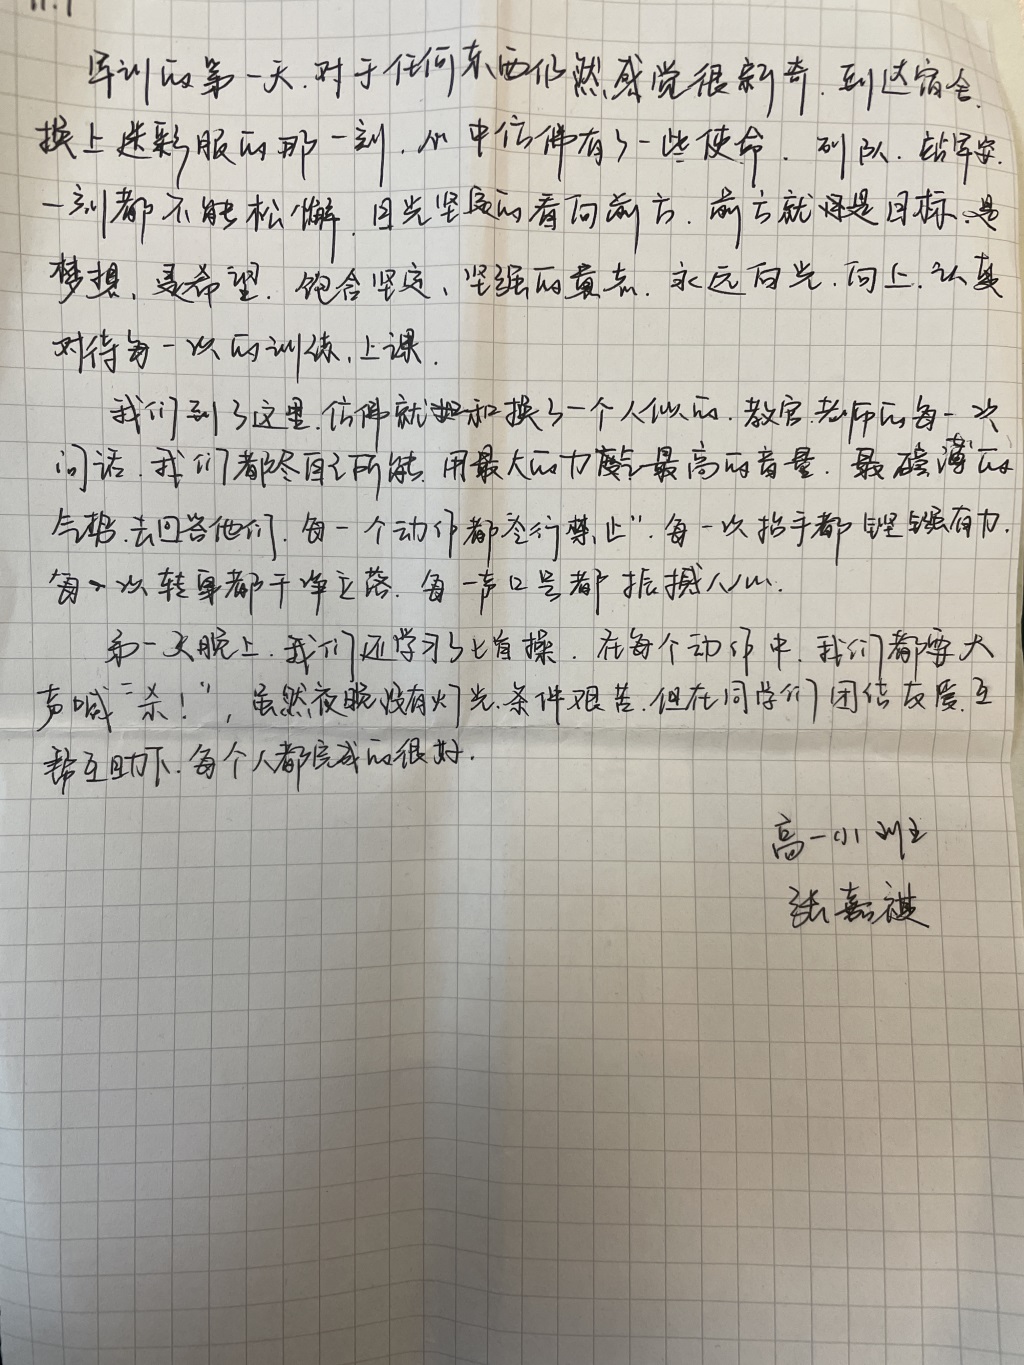 11.1
军训的第一天,对于任何东西仍然感觉很新奇,到达宿舍,
换上迷彩服的那一刻,心中仿佛有了一些使命,列队,站军姿,
一刻都不能松懈,目光坚定的看向前方,前方就是目标,是
梦想,是希望,饱含坚定、坚强的意志,永远向光,向上,认真
对待每一次的训练,上课.
我们到了这里,仿佛就和换了一个人似的,教官,老师的每一次
问话,我们都尽自己所能,用最大的力度,最高的音量,最磅薄的
气势,去回答他们,每一个动作都“令行禁止”,每一次抬手都铿锵有力,
每一次转身都干净立落,每一声口号都振撼人心.
第一天晚上,我们还学习了匕首操,在每个动作中,我们都要大
声喊“杀!”,虽然夜晚没有灯光,条件艰苦,但在同学们团结友爱,互
帮互助下,每个人都完成的很好.
高一小班
张嘉祺